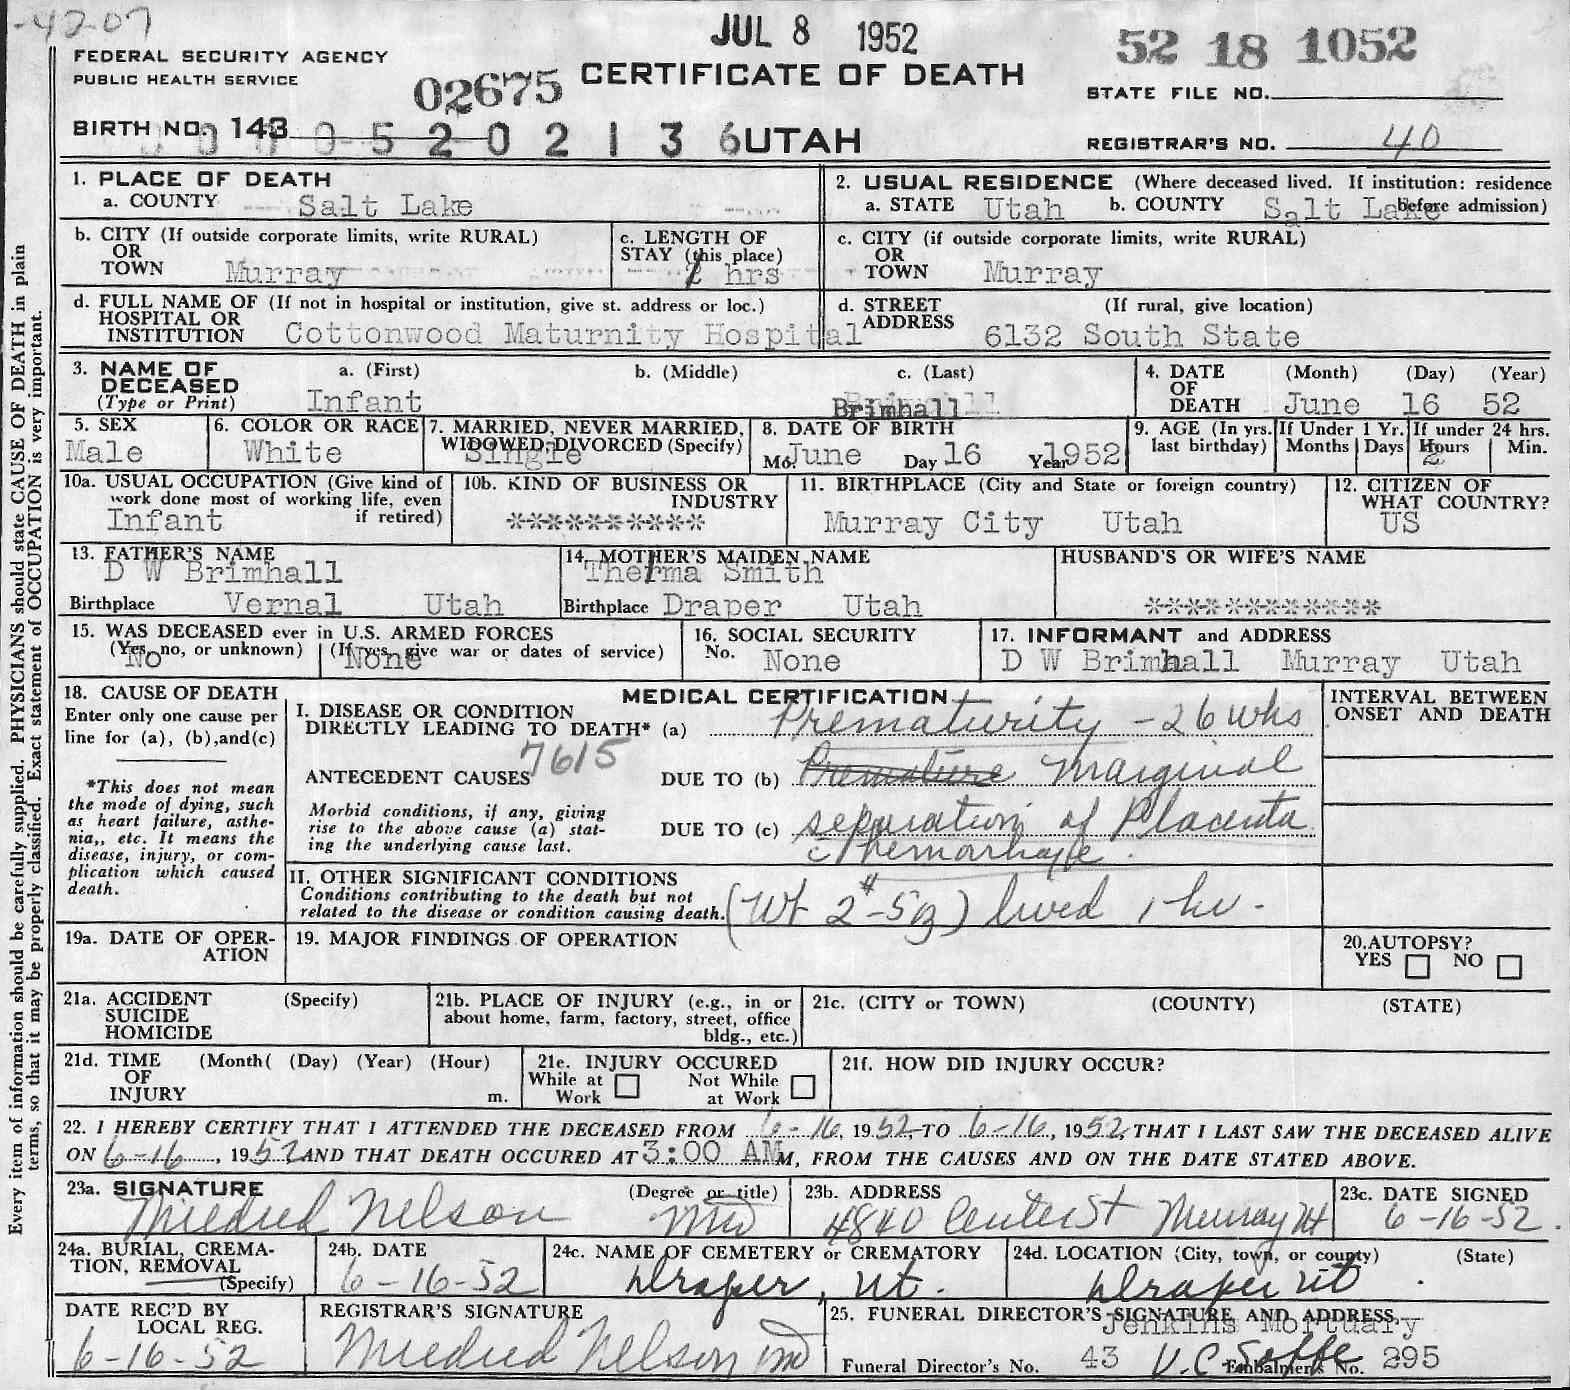 -42-07
JUL 8 1952
52 18 1052
FEDERAL SECURITY AGENCY
PUBLIC HEALTH SERVICE
02675
CERTIFICATE OF DEATH
STATE FILE NO.
BIRTH NO. 143
0 5 2 0 2 1 3 6 UTAH
REGISTRAR'S NO. 40
Every item of information should be carefully supplied. PHYSICIANS should state CAUSE OF DEATH in plain
terms, so that it may be properly classified. Exact statement of OCCUPATION is very important.
1. PLACE OF DEATH
a. COUNTY Salt Lake
2. USUAL RESIDENCE (Where deceased lived. If institution: residence
a. STATE Utah b. COUNTY Salt Lake before admission)
b. CITY (If outside corporate limits, write RURAL)
OR
TOWN Murray
c. LENGTH OF
STAY (this place)
hrs
c. CITY (if outside corporate limits, write RURAL)
OR
TOWN Murray
d. FULL NAME OF (If not in hospital or institution, give st. address or loc.)
HOSPITAL OR
INSTITUTION Cottonwood Maturnity Hospital
d. STREET (If rural, give location)
ADDRESS 6132 South State
3. NAME OF
DECEASED
(Type or Print)
a. (First) b. (Middle) c. (Last)
Infant Brimhall
4. DATE (Month) (Day) (Year)
OF
DEATH June 16 52
5. SEX
Male
6. COLOR OR RACE
White
7. MARRIED, NEVER MARRIED,
WIDOWED, DIVORCED (Specify)
Single
8. DATE OF BIRTH
Mo. June Day 16 Year 1952
9. AGE (In yrs.
last birthday)
If Under 1 Yr.
Months Days
If under 24 hrs.
Hours Min.
2
10a. USUAL OCCUPATION (Give kind of
work done most of working life, even
if retired)
Infant
10b. KIND OF BUSINESS OR
INDUSTRY
**********
11. BIRTHPLACE (City and State or foreign country)
Murray City Utah
12. CITIZEN OF
WHAT COUNTRY?
US
13. FATHER'S NAME
D W Brimhall
Birthplace Vernal Utah
14. MOTHER'S MAIDEN NAME
Thelma Smith
Birthplace Draper Utah
HUSBAND'S OR WIFE'S NAME
************
15. WAS DECEASED ever in U.S. ARMED FORCES
(Yes, no, or unknown) (If yes, give war or dates of service)
No None
16. SOCIAL SECURITY
No. None
17. INFORMANT and ADDRESS
D W Brimhall Murray Utah
18. CAUSE OF DEATH
Enter only one cause per
line for (a), (b),and(c)
*This does not mean
the mode of dying, such
as heart failure, asthe-
nia,, etc. It means the
disease, injury, or com-
plication which caused
death.
MEDICAL CERTIFICATION
I. DISEASE OR CONDITION
DIRECTLY LEADING TO DEATH* (a) Prematurity - 26 wks
7615
ANTECEDENT CAUSES DUE TO (b) Premature Marginal
Morbid conditions, if any, giving
rise to the above cause (a) stat-
ing the underlying cause last.
DUE TO (c) separation of Placenta
c hemorhage.
INTERVAL BETWEEN
ONSET AND DEATH
II. OTHER SIGNIFICANT CONDITIONS
Conditions contributing to the death but not
related to the disease or condition causing death. (Wt 2# - 5 oz) lived 1 hr.
19a. DATE OF OPER-
ATION
19. MAJOR FINDINGS OF OPERATION
20. AUTOPSY?
YES NO
21a. ACCIDENT (Specify)
SUICIDE
HOMICIDE
21b. PLACE OF INJURY (e.g., in or
about home, farm, factory, street, office
bldg., etc.)
21c. (CITY or TOWN) (COUNTY) (STATE)
21d. TIME (Month( (Day) (Year) (Hour)
OF
INJURY m.
21e. INJURY OCCURED
While at Not While
Work at Work
21f. HOW DID INJURY OCCUR?
22. I HEREBY CERTIFY THAT I ATTENDED THE DECEASED FROM 6-16, 1952, TO 6-16, 1952, THAT I LAST SAW THE DECEASED ALIVE
ON 6-16, 1952 AND THAT DEATH OCCURED AT 3:00 AM M, FROM THE CAUSES AND ON THE DATE STATED ABOVE.
23a. SIGNATURE (Degree or title)
Mildred Nelson MD
23b. ADDRESS
4840 Center St Murray Ut
23c. DATE SIGNED
6-16-52.
24a. BURIAL, CREMA-
TION, REMOVAL
(Specify)
24b. DATE
6-16-52
24c. NAME OF CEMETERY or CREMATORY
Draper, Ut.
24d. LOCATION (City, town, or county) (State)
Draper Ut.
DATE REC'D BY
LOCAL REG.
6-16-52
REGISTRAR'S SIGNATURE
Mildred Nelson MD
25. FUNERAL DIRECTOR'S SIGNATURE AND ADDRESS
Jenkins Mortuary
Funeral Director's No. 43 V.C. Soffe Embalmer's No. 295